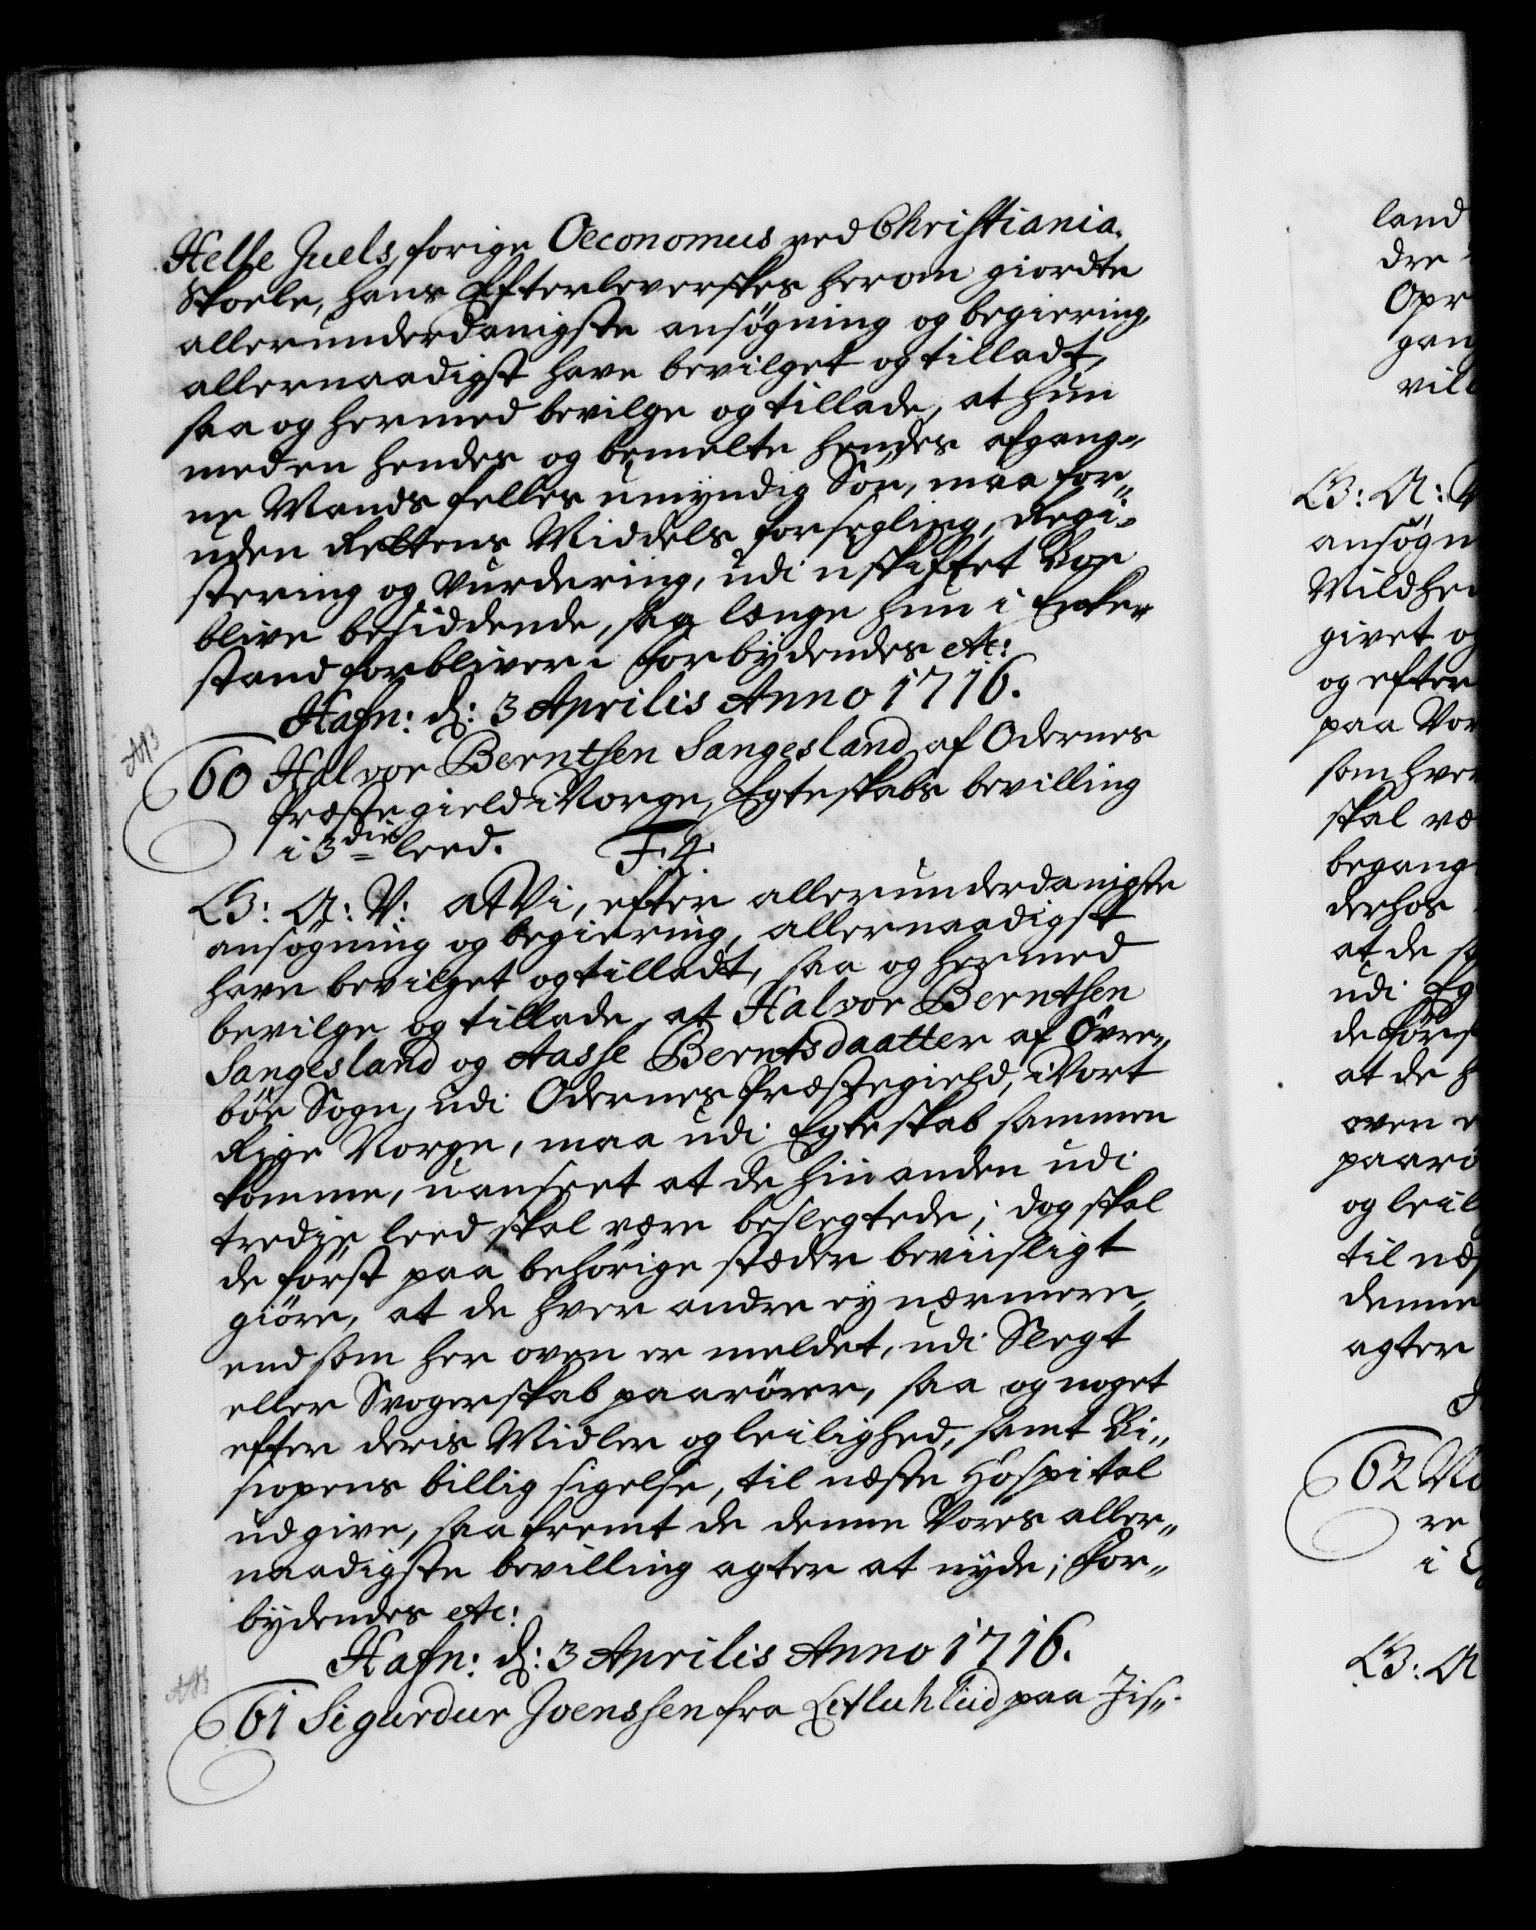 Helle Juels, forige Oeconomus ved Christiania
Skoele, hans Efterleverskes herom giordte
allerunderdanigste ansøgning og begiering,
allernaadigst have bevilget og tilladt,
saa og hermed bevilge og tillade, at hun
med en hendes og bemelte hendes afgang„
ne Mands felles umyndig Søn, maa for„
uden Rettens Middels forsegling, Regi„
stering og Vurdering, udi uskiftet Boe
blive besiddende, saa længe hun i Enke„
stand forbliver. Forbydendes etc:
Hafn: d: 3 Aprilis Anno 1716.
60 Halvor Berntsen Sangesland af Odernes
Præstegield i Norge, Egteskabs bevilling
i 3die leed. F. 4.
G: A: V: at Vi, efter allerunderdanigste
ansøgning og begiering, allernaadigst
have bevilget og tilladt, saa og hermed
bevilge og tillade, at Halvor Berntsen
Sangesland og Aasse Berntsdaatter af Øvre„
bøe Sogn, udi Odernes Præstegield, i Vort
Rige Norge, maa udi Egteskab sammen
komme, uanseet at de hinanden udi
tredie leed skal være beslegtede; dog skal
de først paa behørige stæder beviisligt
giøre, at de hver andre ey nærmere,
end som her oven er meldet, udi Slegt
eller Svogerskab paarører, saa og noget
efter deris Midler og leilighed, samt Bi„
sopens billig sigelse, til næste Hospital
udgive, saa fremt de denne Vores aller„
naadigste bevilling agter at nyde; For„
bydendes etc:
Hafn: d: 3 Aprilis Anno 1716.
61 Sigurdur Joenssen fra paa Jis„
land
dre
Opr
gan
vil
G: A: V
ansøgn
Mildhed
givet og
og efter
paa Vor
som hver
skal væ
begang
derhos
at de
udi Eg
de først
at de h
oven e
paarø
og leil
til næs
denne
agter
62 No
re
i E
G: A